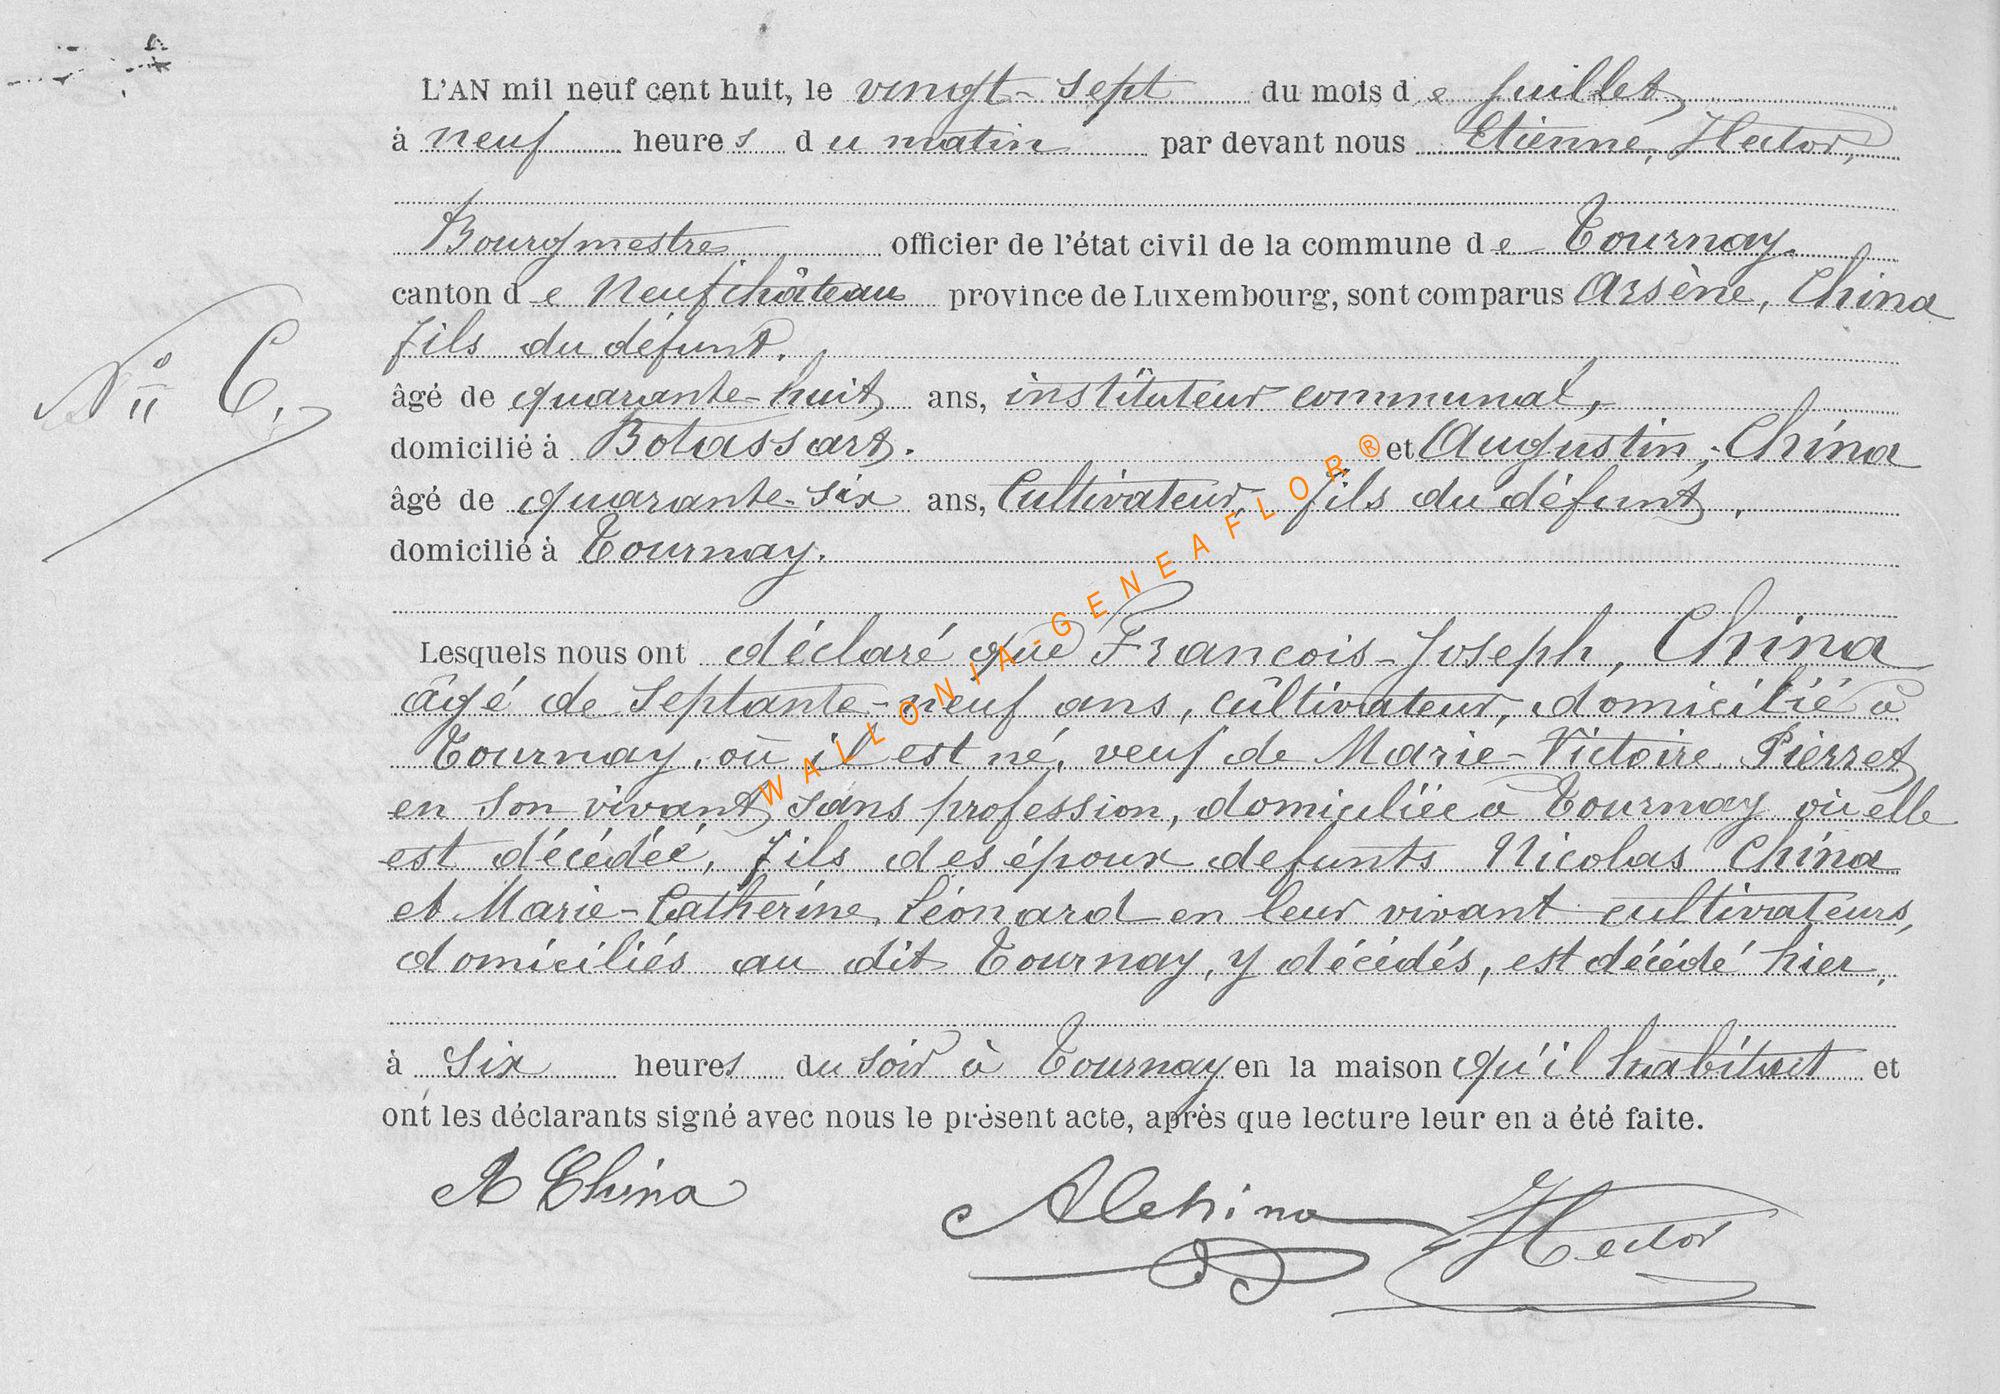 L'AN mil neuf cent huit, le vingt-sept du mois de Juillet,
à neuf heures du matin par devant nous Etienne, Hector,
Bourgmestre officier de l'état civil de la commune de Tournay.
canton de Neufchâteau province de Luxembourg, sont comparus Arsène, China
fils du défunt.
N° 6.
âgé de quarante-huit ans, instituteur communal,
domicilié à Botassart. et Augustin, China
âgé de quarante-six ans, Cultivateur, fils du défunt,
domicilié à Tournay.
Lesquels nous ont déclaré que François-Joseph, China
âgé de septante-neuf ans, cultivateur, domicilié à
Tournay, où il est né, veuf de Marie-Victoire Pierret
en son vivant sans profession, domiciliée à Tournay où elle
est décédée, fils des époux defunts Nicolas China
et Marie-Catherine Léonard en leur vivant cultivateurs,
domiciliés au dit Tournay, y décédés, est décédé hier,
à six heures du soir à Tournay en la maison qu'il habitait et
ont les déclarants signé avec nous le présent acte, après que lecture leur en a été faite.
A China AChina Hector
WALLONIA-GENEAFLOR®